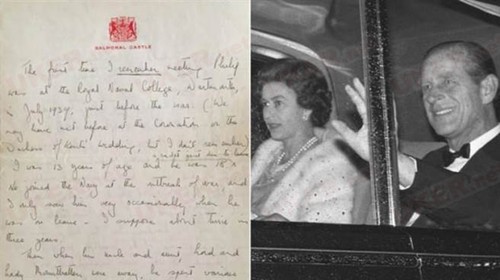 BALMORAL CASTLE
The first time I remember meeting Philip
was at the Royal Naval College, Dartmouth,
in July 1939, just before the war. (We
may have met before at the Coronation or the
Duchess of Kent's wedding, but I don't remember
I was 13 years of age and he was 18
He joined the Navy at the outbreak of war and
I only saw him very occasionally when he
was on leave - I suppose about twice in
three years.
Then when his uncle and aunt, Lord and
Lady Mountbatten were away, he spent various